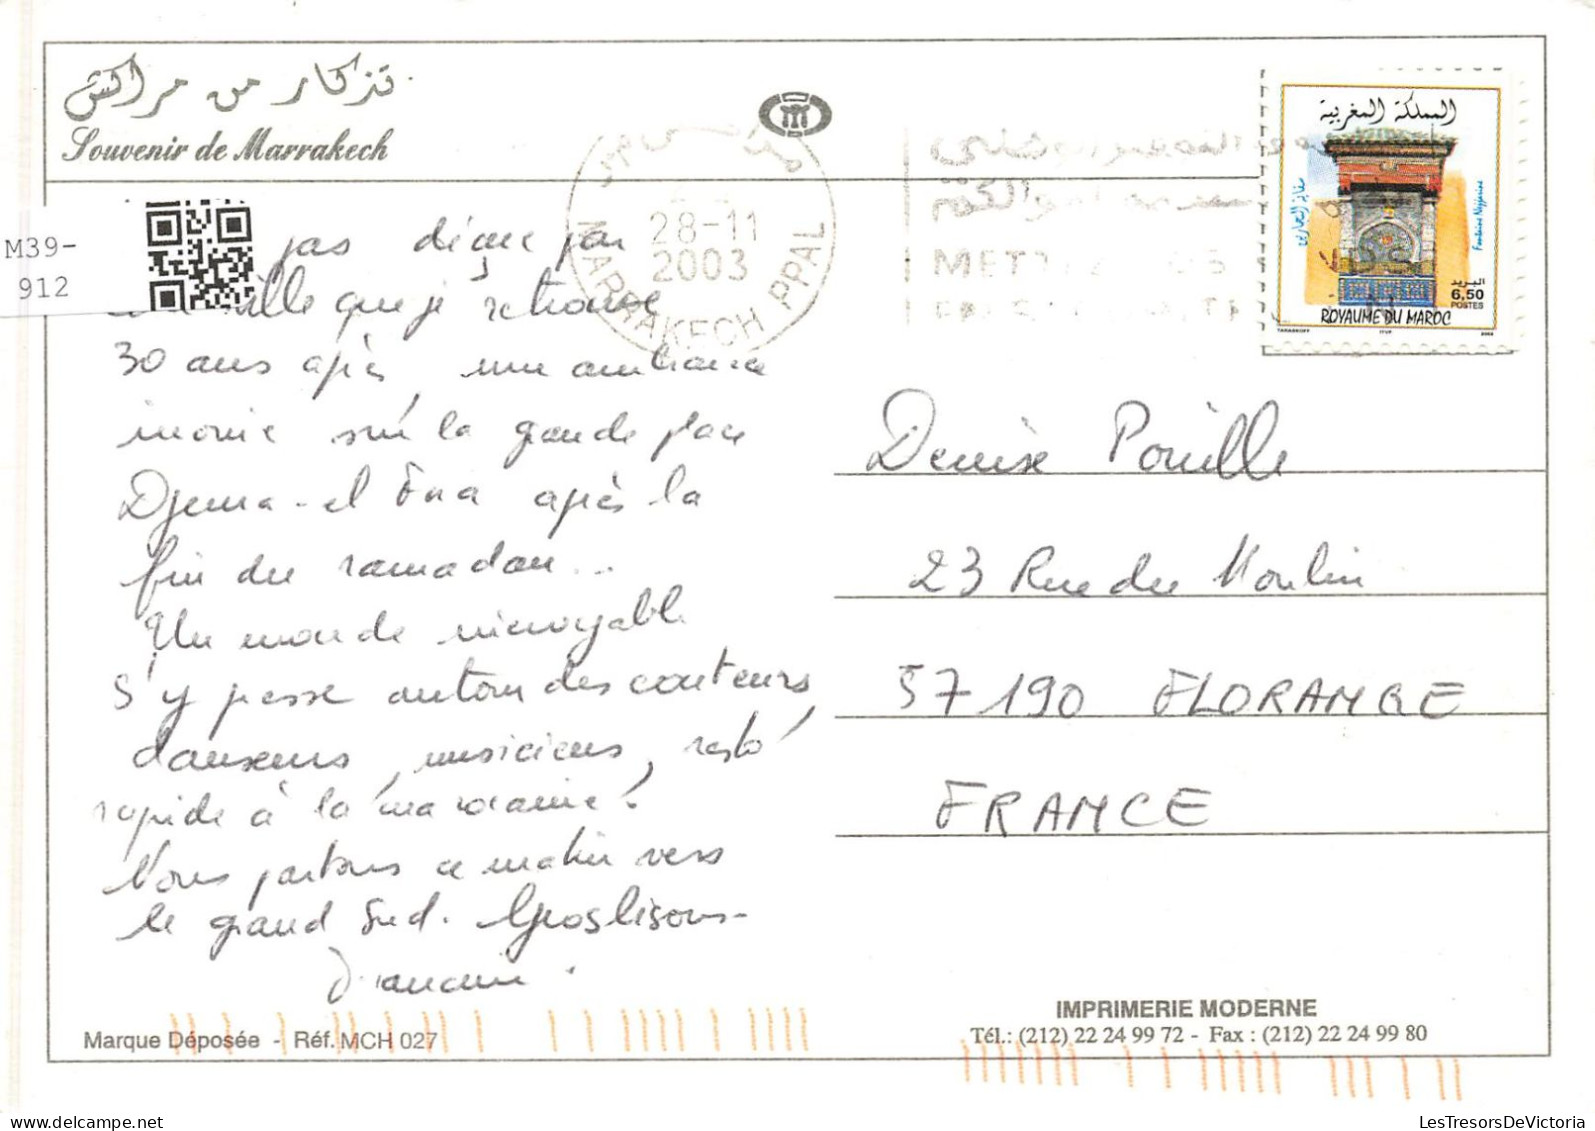 تذكار من مراكش
Souvenir de Marrakech
M39-
912
pas déçue par
ville que je retrouve
30 ans après, une ambiance
inouïe sur la grande place
Djema-el Fna après la
fin du ramadan...
Un monde incroyable
s'y presse autour des conteurs,
danseurs, musiciens, resto
rapide à la marocaine!
Nous partons ce matin vers
le grand Sud. Gros bisous-
28-11
2003
MARRAKECH PPAL
المملكة المغربية
سقاية النجارين
Fontaine Nejjarine
البريد
6,50
POSTES
ROYAUME DU MAROC
Denise Pouille
23 Rue du Moulin
57190 FLORANGE
FRANCE
Marque Déposée - Réf. MCH 027
IMPRIMERIE MODERNE
Tél.: (212) 22 24 99 72 - Fax : (212) 22 24 99 80
LesTresorsDeVictoria